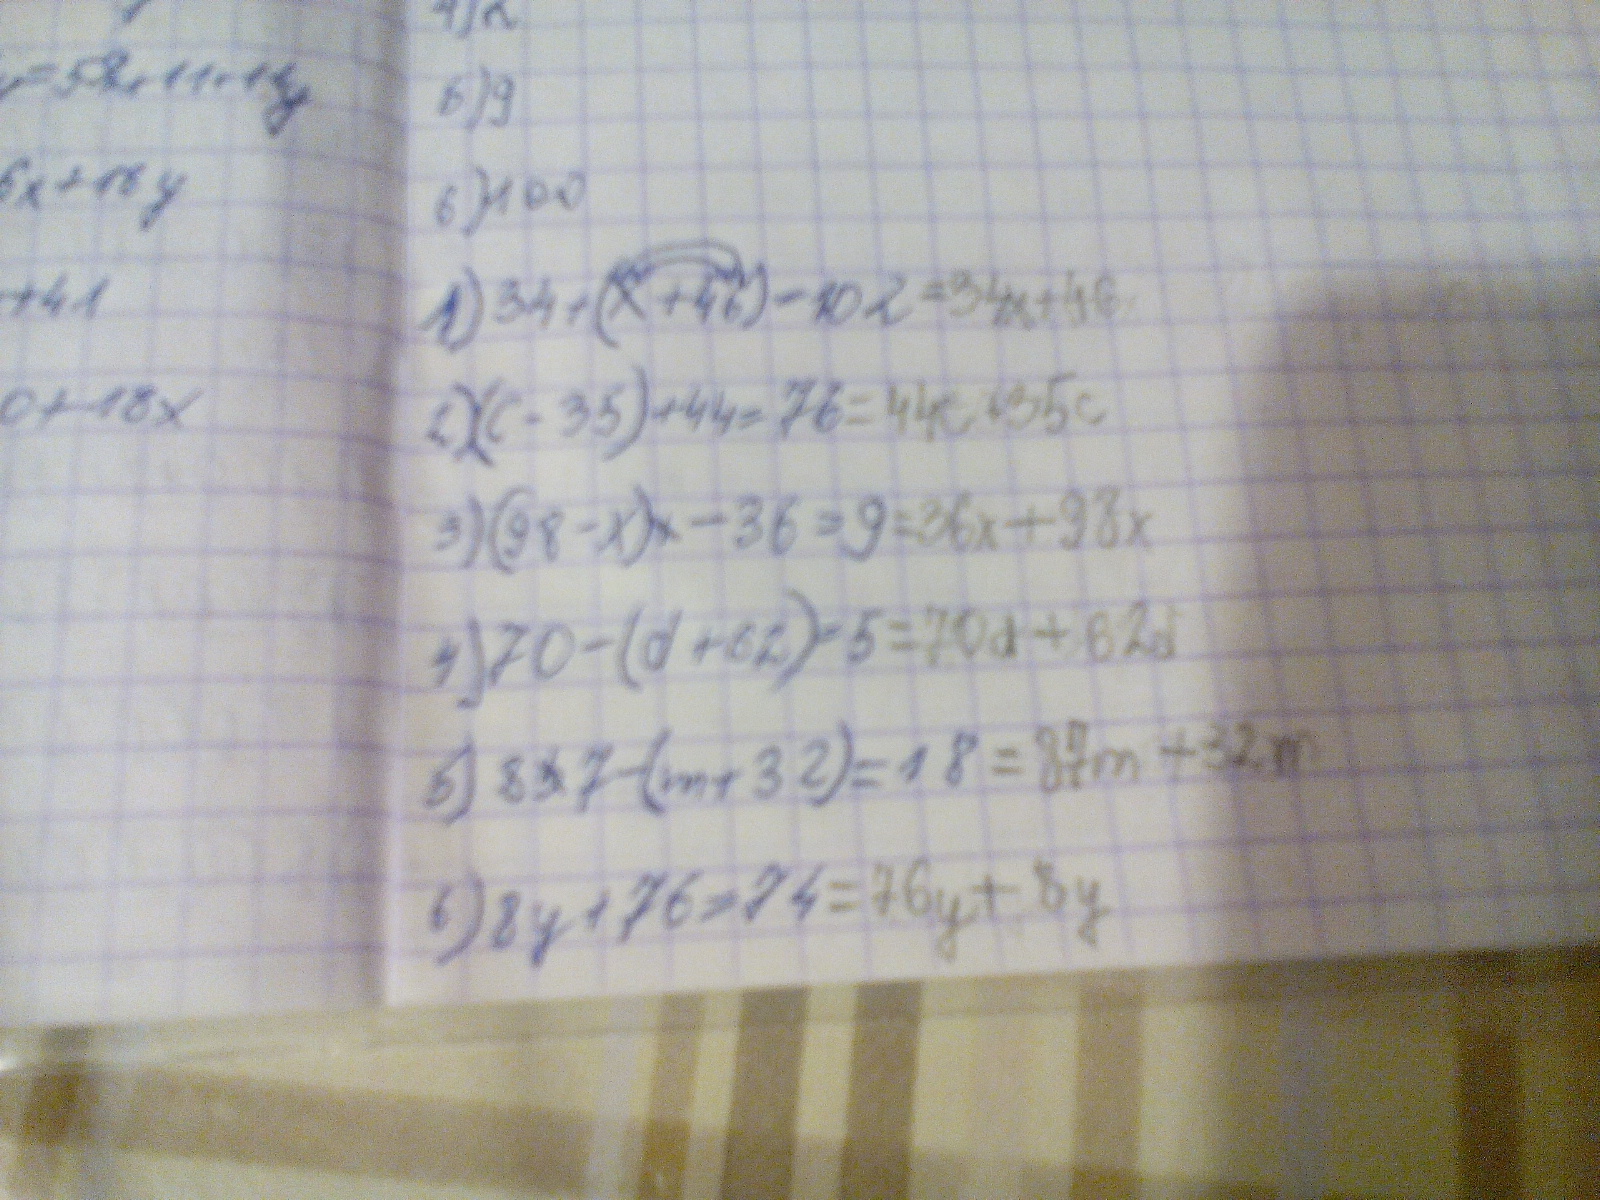 6x+18y
+41
0+18x
б)9
в)100
1)34+(x+46)-102=34x+46
2)(c-35)+44=76=44c+35c
3)(98-x)-36=9=36x+98x
4)70-(d+62)=5=70d+62d
5)87-(m+32)=18=87m+32m
6)8y+76=74=76y+8y